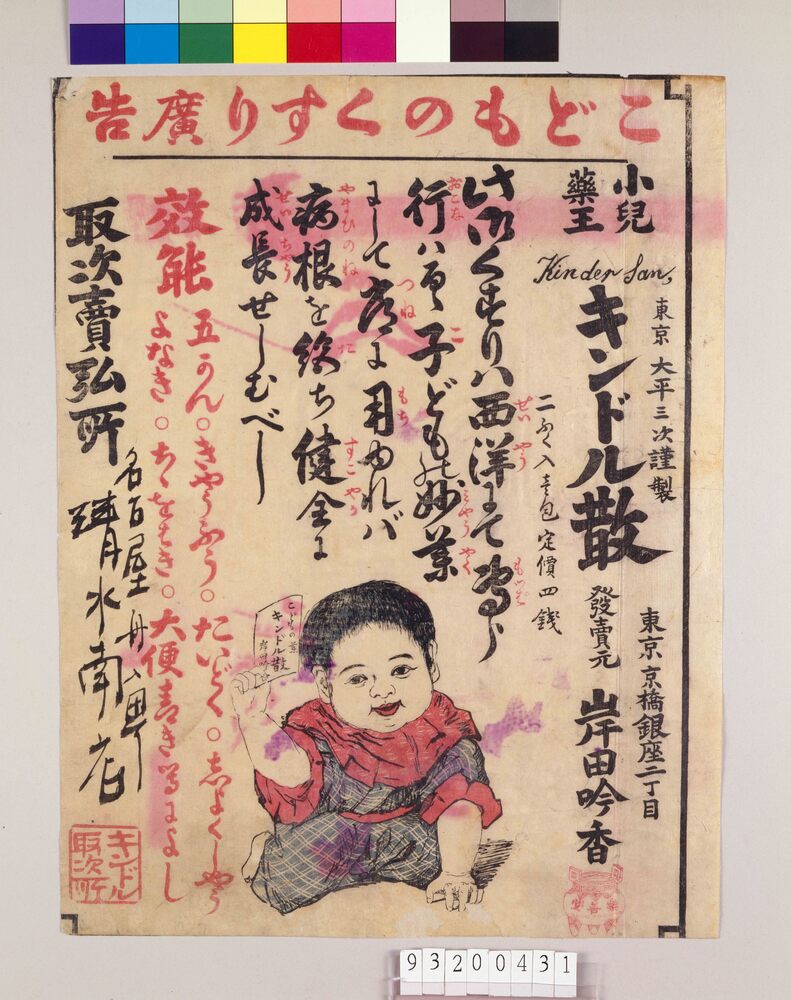 こどものくすり廣告
小兒
藥王
Kinder San,
キンドル散
東京 大平三次謹製
二ふく入壱包 定價四錢
發賣元 岸田吟香
東京京橋銀座二丁目
此御くすりハ西洋にて
行ハる 子どもの妙薬
にして 常に用ゆれバ
病根を絶ち健全に
成長せしむべし
效能
五かん。きやうふう。たいどく。
よなき。ちゝをはき。大便青き等によし
取次賣弘所
名古屋
清水南店
こどもの薬
キンドル散
岸田吟香
キンドル
取次所
93200431